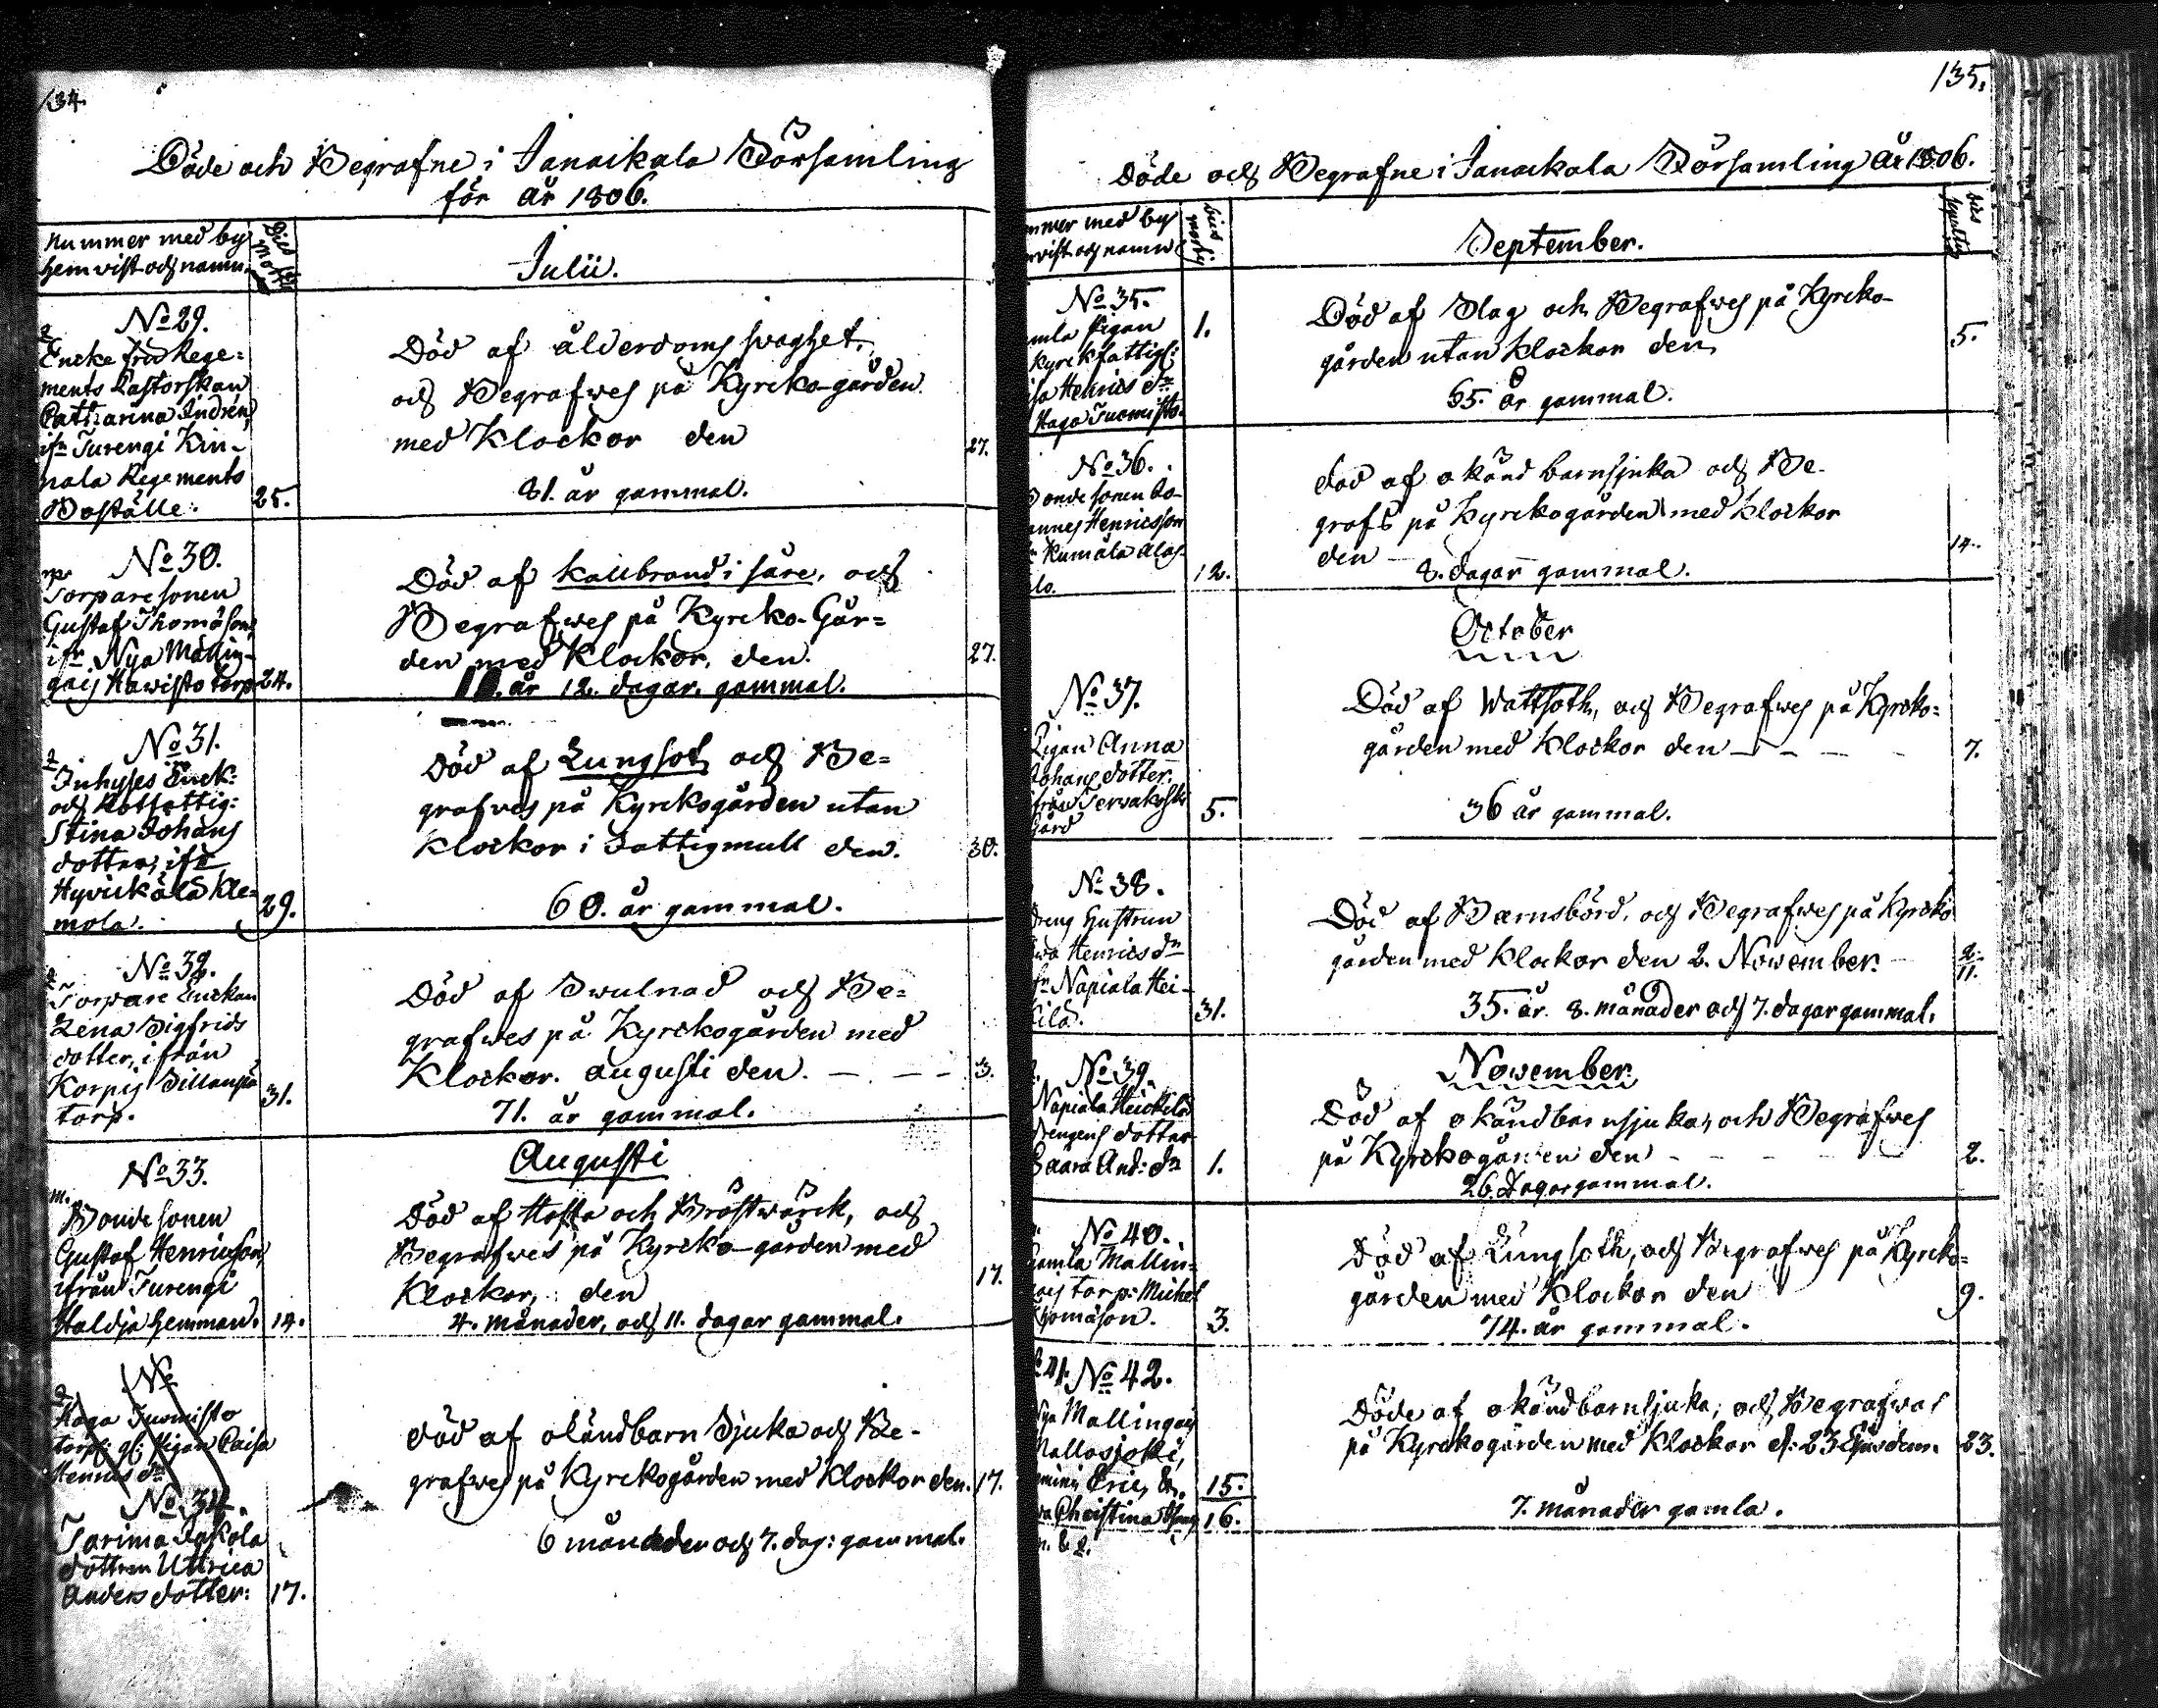 134.
Döde och Begrafne i Janaikala Församling
för År 1806.
Nummer med by
hemvist och namn.
Dies
Mortis
Julii.
No 29.
Encke fru Rege=
ments Pastorskan
Catharina Indrén,
ifn Turengi Kin-
nala Regements
Boställe.
25.
Död af ålderdoms swaghet,
och Begrafwes på Kyrcko-gården
med Klockor den
27.
81. år gammal.
No 30.
m.
Torpare sonen
Gustaf Thomåson,
ifn Nya Mallin-
gais Hawisto torp
24.
Död af kallbrand i såre, och
Begrafwes på Kyrcko-Går=
den med Klockor, den.
27.
år 12. dagar. gammal.
No 31.
Inhyses Enck:
och Rotfattig:
Stina Johans
dotter, ifn
Hyvickälä Kle=
mola.
29.
Död af Lungsot, och Be=
grafwes på Kyrckogården utan
Klockor i Fattigmull den.
30.
60. år gammal.
No 32.
Torpare Enckan
Lena Sigfrids
dotter, ifrån
Korpis Sillanpä
torp.
31.
Död af Swulnad och Be=
grafwes på Kyrckogården med
Klockor. Augusti den. — - — -
3.
71. år gammal.
Augusti
No 33.
m.
Bonde sonen
Gustaf Henricsson,
ifrån Turengi
Haldja hemman.
14.
Död af Hosta och Bröstwärck, och
Begrafwes på Kyrcko-gården med
Klockor, den
17.
4. månader, och 11. dagar gammal.
No
Haga Tuomisto
torps: gl: Pigan Caisa
Henrics dr
No 34.
Tarima Jakola
dottren Ullrica
Anders dotter:
17.
död af okändbarn Sjuka och Be-
grafwes på Kyrckogården med Klockor den.
17.
6 månader och 7. dag: gammal.
135.
Döde och Begrafne i Janackala Församling År 1806.
mmer med by
vist och namn
Dies
mortis
September.
Dies
sepultur
No 35.
mla Pigan
kyrckfattigl:
sa Henrics dr
Haga Tuomisto.
1.
Död af Slag och Begrafwes på Kyrcko-
gården utan Klockor den
5.
65. år gammal.
No 36.
Bonde sonen Jo-
annes Henricsson
Kumala Alas-
lo.
12.
död af okänd barnsjuka och Be-
grafs på Kyrckogården med Klockor
den —
14.
8. dagar gammal.
October
No 37.
Pigan Anna
Johans dotter.
från Tervakoski
Gård
5.
Död af Wattsoth, och Begrafwes på Kyrcko=
gården med Klockor den — - — -
7.
36 år gammal.
No 38.
dreng Hustrun
Ewa Henrics dr
fn Napiala Hei-
kilä.
31.
Död af Barnsbörd, och Begrafwes på Kyrcko
gården med Klockor den 2. November.
2.
11.
35. år. 8. månader och 7. dagar gammal.
November.
No 39.
Napiala Heickilä
drengens dotter
Saara And: dr
1.
Död af okändbarnsjuka, och Begrafwes
på Kyrckogården den
2.
26. dagar gammal.
No 40.
Gamla Mallin=
gais torp: Michel
Thomåson.
3.
Död af Lungsoth, och Begrafwes på Kyrcko=
gården med Klockor den
9.
74. år gammal.
41. No 42.
Nya Mallingais
Mallosjoki,
Eric,
15.
Christina
16.
Döde af okändbarnsjuka, och Begrafwas
på Kyrckogården med Klockor d: 23 Ejusdem.
23.
7. månader gamla.